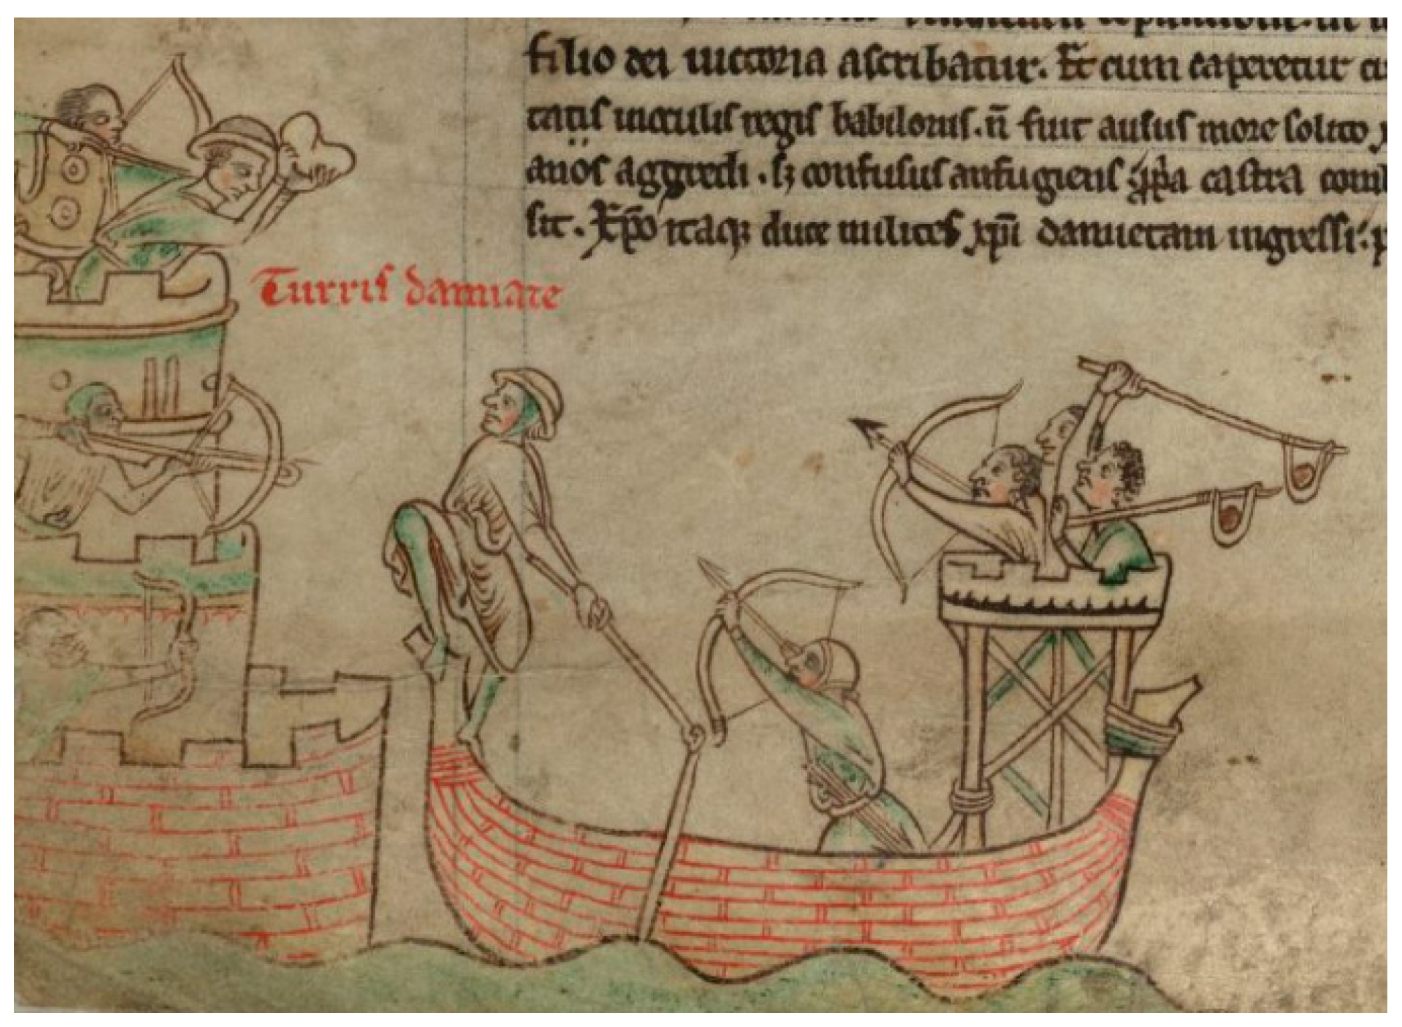 filio dei uictoria ascribatur. Et cum caperetur ci
tatis in oculis regis babilonis. n̄ fuit ausus more solito x
anos aggredi. sꝫ confusus aufugiens ꝓp̄a castra com
sit. Xp̄o itaqꝫ duce milites xp̄i damietam ingressi. p
Turris damiate